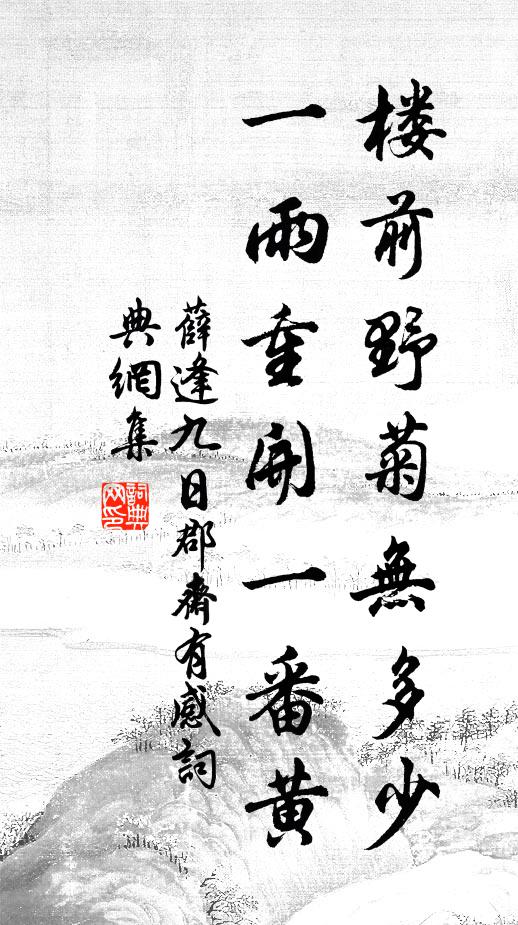 楼前野菊無多少
一雨重開一番黄
薛逢九日郡齋有感詞
典網集
詞典网印